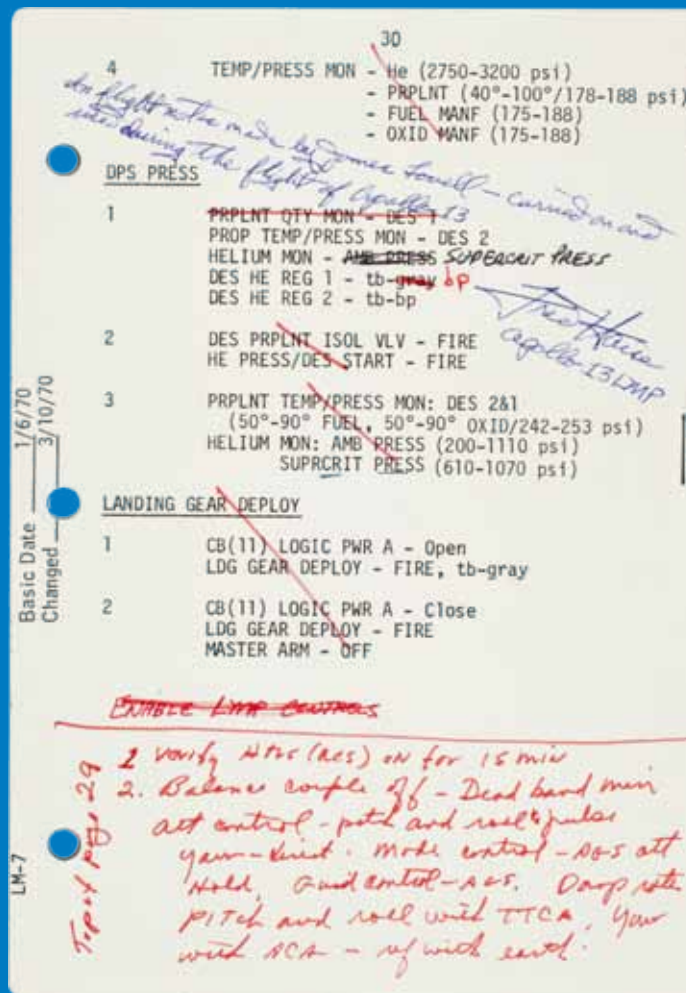 30
4 TEMP/PRESS MON - He (2750-3200 psi)
- PRPLNT (40°-100°/178-188 psi)
- FUEL MANF (175-188)
- OXID MANF (175-188)
In flight notes made by James Lovell - carried on and
used during the flight of Apollo 13
DPS PRESS
1 PRPLNT QTY MON - DES 1
PROP TEMP/PRESS MON - DES 2
HELIUM MON - AMB PRESS SUPERCRIT PRESS
DES HE REG 1 - tb-gray bp
DES HE REG 2 - tb-bp
Fred Haise
Apollo 13 LMP
2 DES PRPLNT ISOL VLV - FIRE
HE PRESS/DES START - FIRE
3 PRPLNT TEMP/PRESS MON: DES 2&1
(50°-90° FUEL, 50°-90° OXID/242-253 psi)
HELIUM MON: AMB PRESS (200-1110 psi)
SUPRCRIT PRESS (610-1070 psi)
Basic Date 1/6/70
Changed 3/10/70
LANDING GEAR DEPLOY
1 CB(11) LOGIC PWR A - Open
LDG GEAR DEPLOY - FIRE, tb-gray
2 CB(11) LOGIC PWR A - Close
LDG GEAR DEPLOY - FIRE
MASTER ARM - OFF
ENABLE CONTROLS
LM-7
Top of page 29
1 Verify (RCS) on for 15 min
2. Balance couple off - Dead band min
att control - pitch and roll pulse
yaw - direct. Mode control - AGS att
Hold, Guid control - AGS. Damp rates
PITCH and roll with TTCA, Yaw
with ACA - with earth.